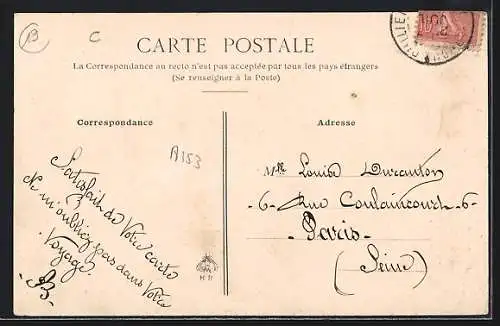 B
C
CARTE POSTALE
La Correspondance au recto n'est pas acceptée par tous les pays étrangers
(Se renseigner à la Poste)
Correspondance
Adresse
A153
Satisfait de Votre carte
Ne m'oubliez pas dans Votre
Voyage.
B
Mlle Louise Duranton
-6- Rue Coulaincourt -6-
- Paris -
(Seine)